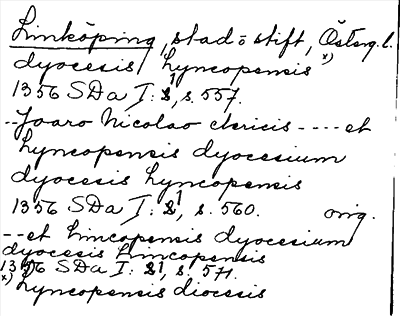 Linköping, stad o stift, Österg. l.
dyocesis lyncopensis x)
1356 SDa I: 1, s. 557.
-- Joaro Nicolao clericis ---- et
lyncopensis dyocesium
dyocesis lyncopensis
1356 SDa I: 1, s. 560. orig.
-- et lincopensis dyocesium
dyocesis lincopensis
1356 SDa I: 1, s. 571.
x) lyncopensis diocesis